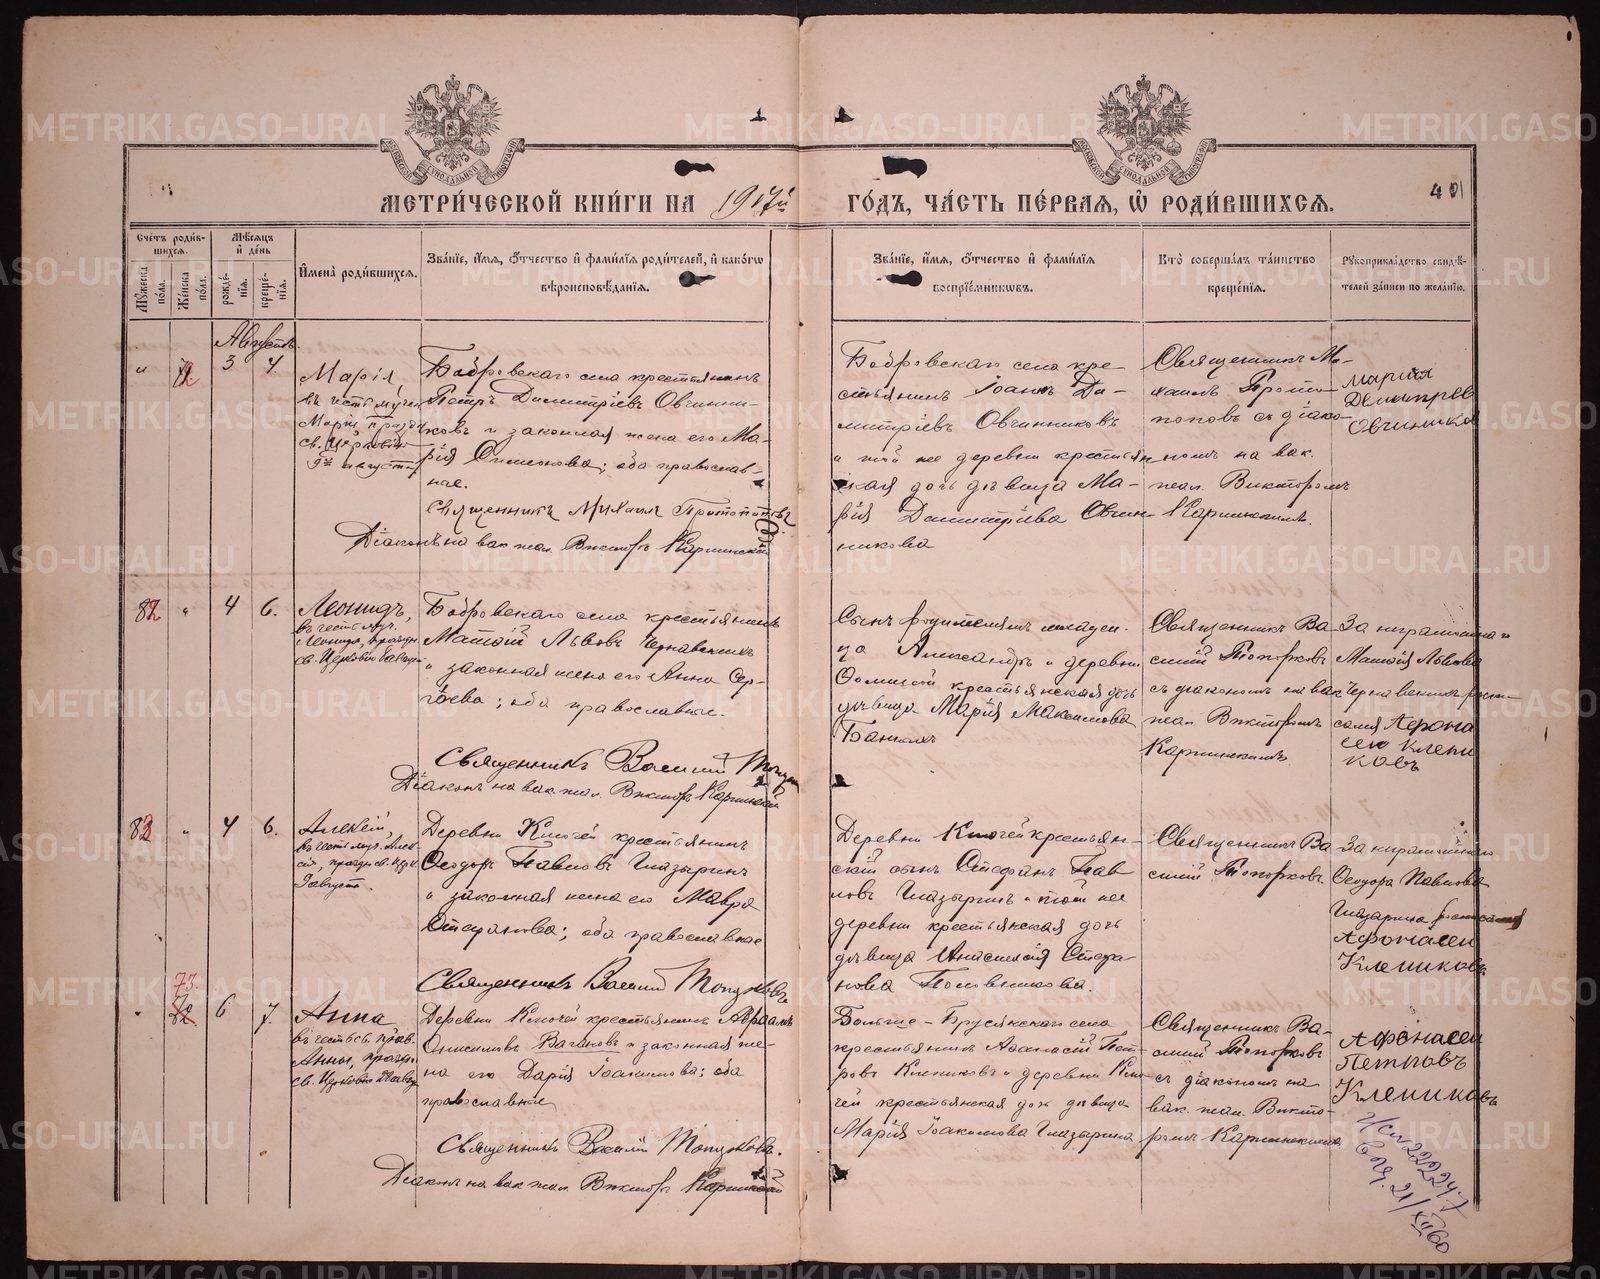 МЕТРИ́ЧЕСКОЙ КНИ́ГИ НА 1917й ГО́ДЪ, ЧА́СТЬ ПЕ́РВАЯ, Ѡ҆ РОДИ́ВШИХСЯ.
401
Сче́тъ роди́в-
шихся.
Му́жеска
по́ла.
Же́нска
по́ла.
Мѣ́сяцъ
и҆ де́нь
рожде́-
нїя.
креще́-
нїя.
И҆мена̀ роди́вшихся.
Зва́нїе, и҆́мя, ѻ҆́тчество и҆ фами́лїя роди́телей, и҆ како́гѡ
вѣроисповѣ́данїя.
Зва́нїе, и҆́мя, ѻ҆́тчество и҆ фами́лїя
воспрїе́мникѡвъ.
Кто̀ соверша́лъ та́инство
креще́нїя.
Рꙋкоприкла́дство свидѣ́-
телей за́писи по жела́нїю.
Августъ
3 4
Марія,
въ честь мучен.
Маріи, праздн.
св. Церковію
9го августа
Бобровскаго села крестьянинъ
Петръ Димитріевъ Овчинни-
ковъ и законная жена его Ма-
рія Симонова; оба православ-
ные.
Священникъ Михаилъ Протопоповъ
Діаконъ на вак. псал. Викторъ Каргинскій
Бобровскаго села кре-
стьянинъ Іоаннъ Ди-
митріевъ Овчинниковъ
и той же деревни крестьян-
ская дочь дѣвица Ма-
рія Димитріева Овчин-
никова
Священникъ Ми-
хаилъ Прото-
поповъ съ діако-
номъ на вак.
псал. Викторомъ
Каргинскимъ.
Мария
Овчиникова
82 " 4 6.
Леонидъ,
въ честь муч.
Леонида, праздн.
св. Церковію 8 августа
Бобровскаго села крестьянинъ
Матѳій Львовъ Чернавскихъ
и законная жена его Анна Сер-
гѣева; оба православные.
Священникъ Василій
Діаконъ на вак. псал. Викторъ Каргинскій
Сынъ родителямъ младен-
ца Александръ и деревни
крестьянская дочь
дѣвица Марія Максимова
Банныхъ
Священникъ Ва-
силій Топорковъ
съ діакономъ на вак.
псал. Викторомъ
Каргинскимъ.
За неграмотнаго
Матѳія Львова
Чернавскихъ
Афона
сею Клепи
ковъ
83 " 4 6.
Алексій,
въ честь муч. Алек-
сія, праздн. св. Церк.
9 августа.
Деревни Ключей крестьянинъ
Ѳеодоръ Павловъ Глазыринъ
и законная жена его Мавра
Стефанова; оба православные
Священникъ Василій Топорковъ
Деревни Ключей крестьян-
скій сынъ Стефанъ Пав-
ловъ Глазыринъ и той же
деревни крестьянская дочь
дѣвица Анастасія Стефа-
нова
Священникъ Ва-
силій Топорковъ.
За неграмотнаго
Ѳеодора Павлова
Глазырина
Афонасеи
Клепиковъ
73.
6 7.
Анна
въ честь св. прав.
Анны, праздн.
св. Церковію
Деревни Ключей крестьянинъ Авраамъ
Онисимовъ Вагановъ и законная же-
на его Дарія Іоакимова; оба
православные
Священникъ Василій Топорковъ.
Діаконъ на вак. псал. Викторъ Каргинскій
Больше-Брусянскаго села
крестьянинъ Аѳанасій Пет-
ровъ Клепиковъ и деревни Клю-
чей крестьянская дочь дѣвица
Марія Іоакимова Глазырина
Священникъ Ва-
силій Топорковъ
съ діакономъ на
вак. псал. Викто-
ромъ Каргинскимъ
Афонасеи
Петровъ
Клепиковъ
222247
21/XII 60